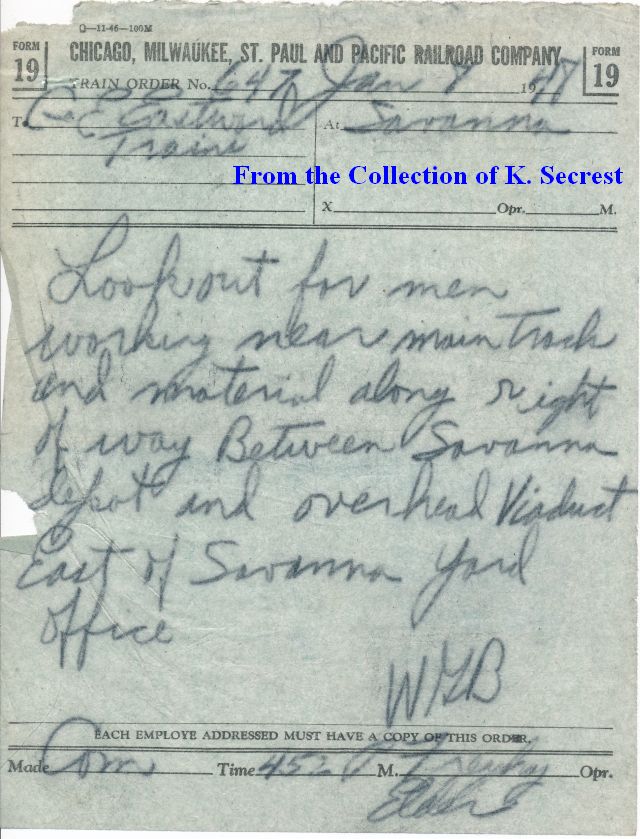 Q—11-46—100M
FORM 19 CHICAGO, MILWAUKEE, ST. PAUL AND PACIFIC RAILROAD COMPANY FORM 19
TRAIN ORDER No. 647 Jan 9 1947
To C&E Eastward At Savanna
Trains
From the Collection of K. Secrest
X Opr. M.
Lookout for men
working near main Track
and material along right
of way Between Savanna
depot and overhead Viaduct
East of Savanna Yard
office
WGB
EACH EMPLOYE ADDRESSED MUST HAVE A COPY OF THIS ORDER.
Made Com Time 452 P M. Opr.